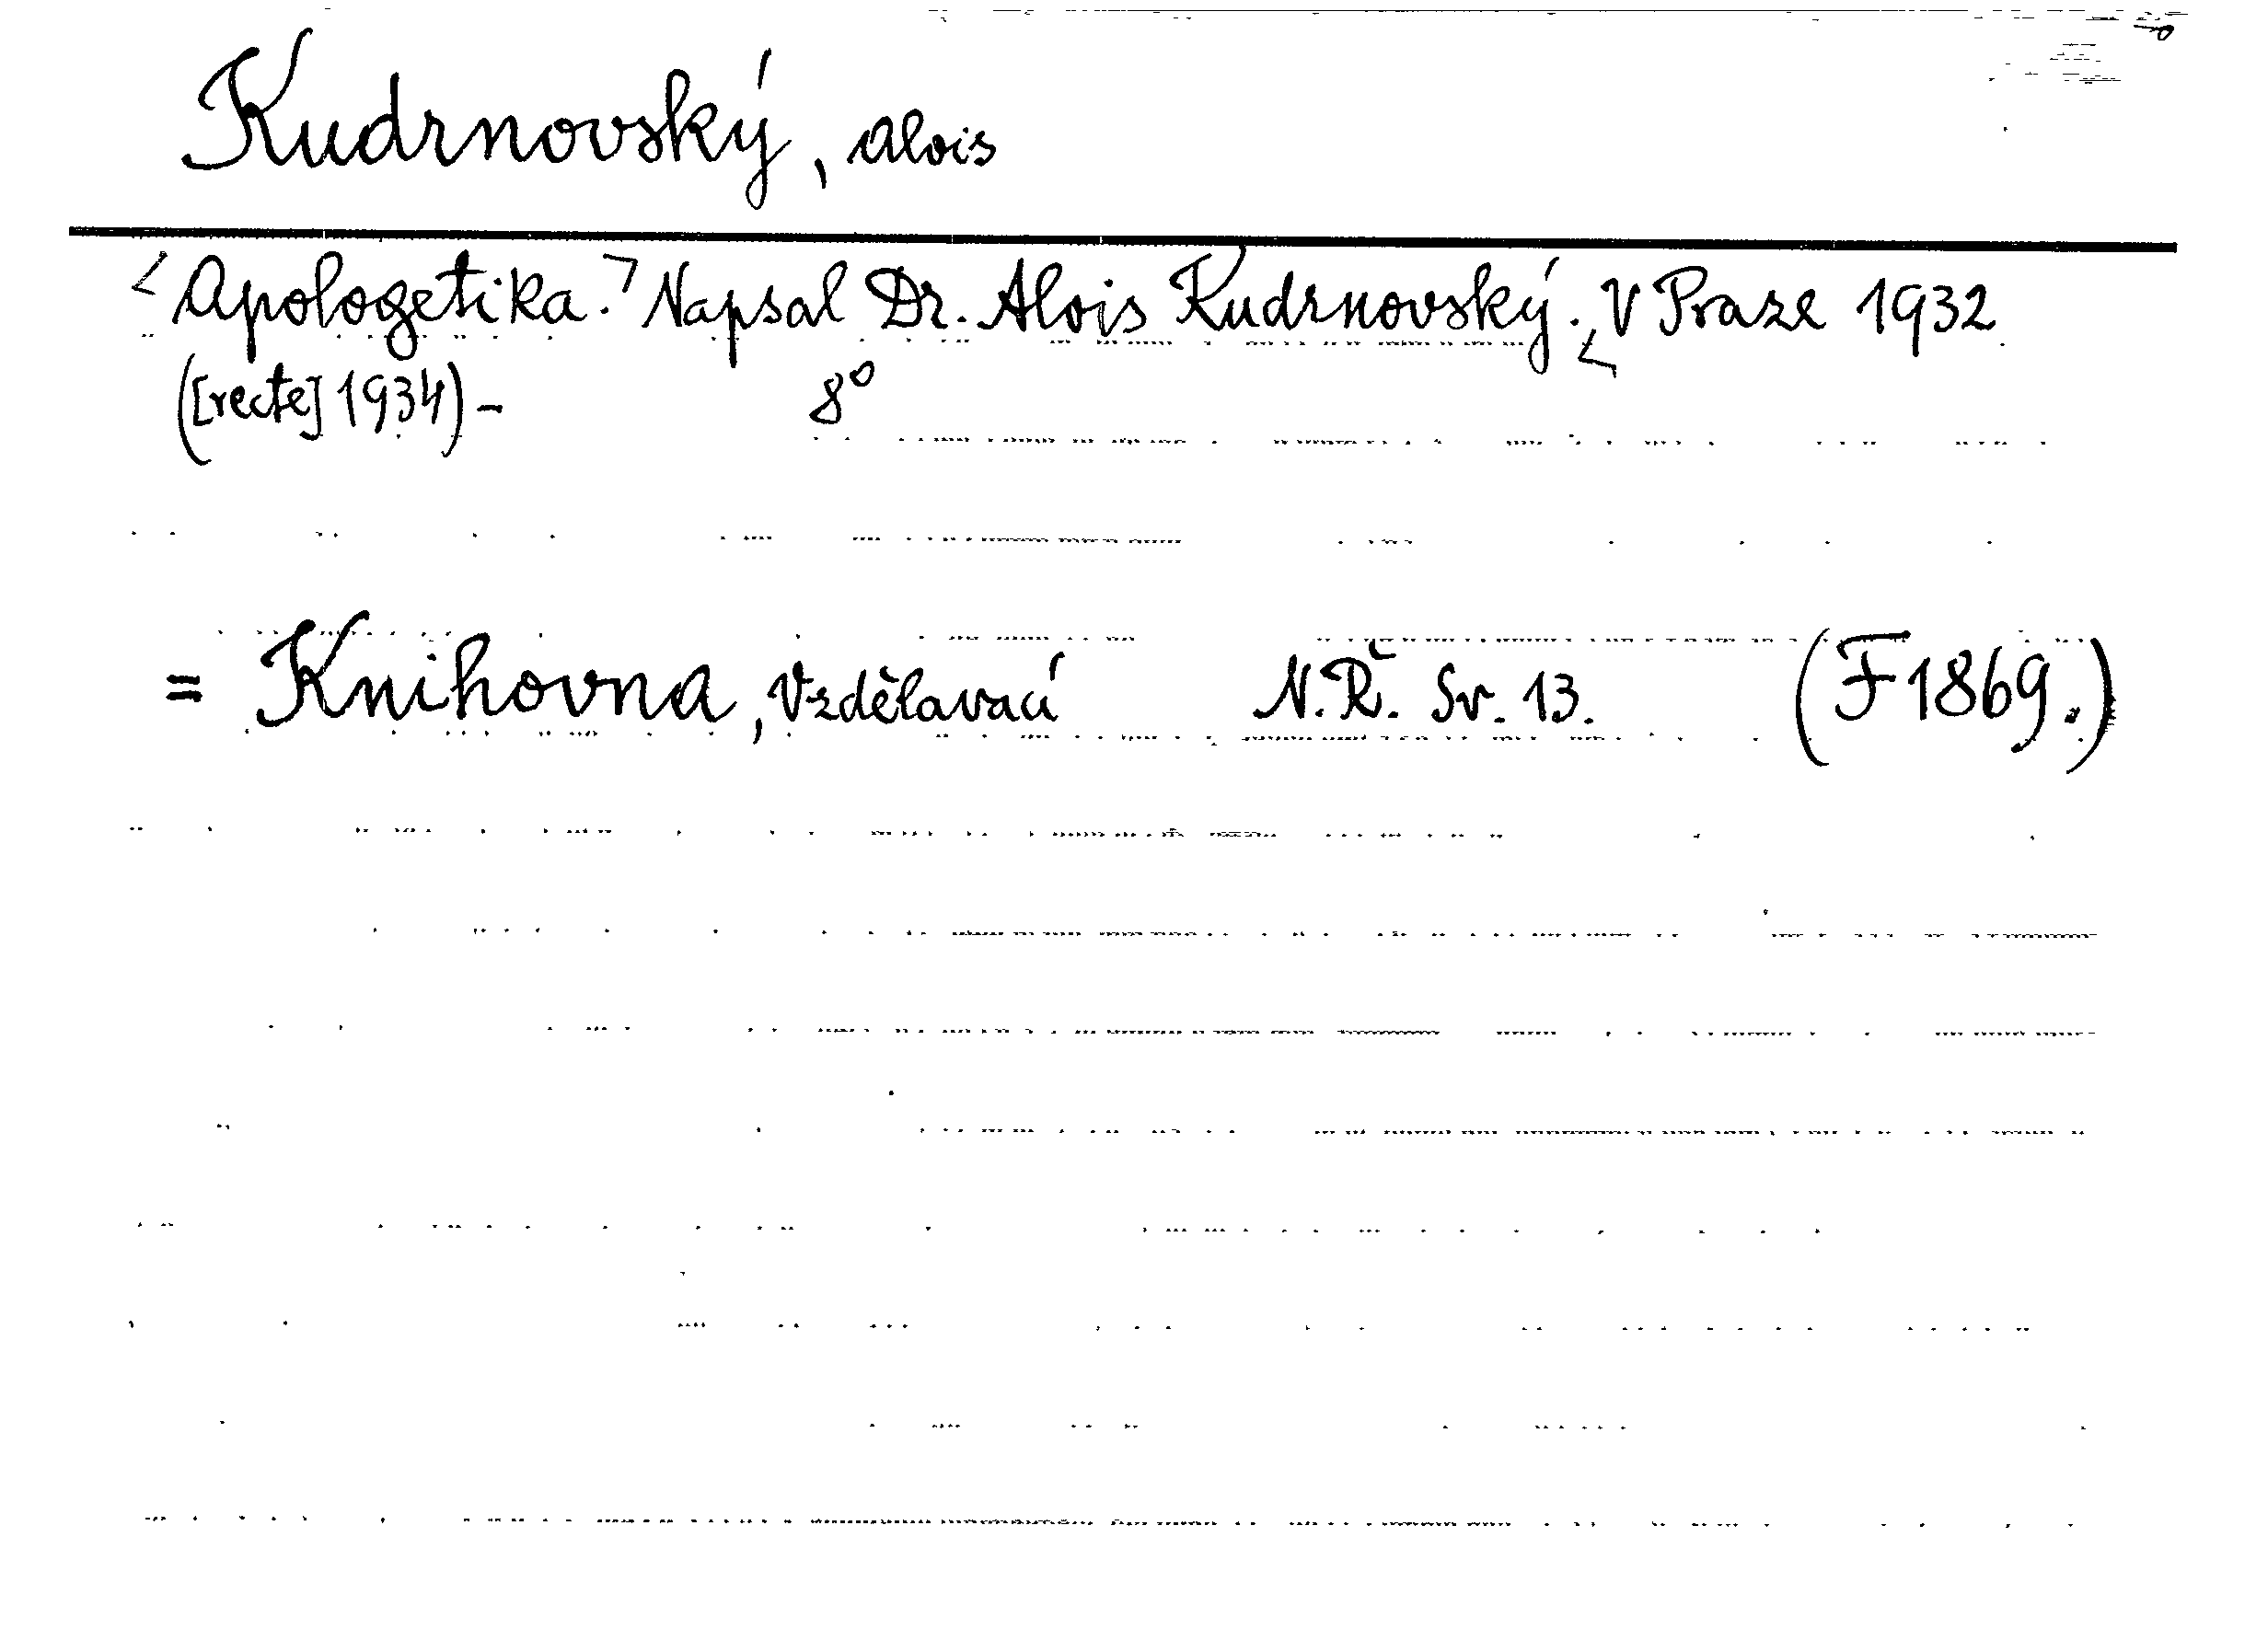 Kudrnovský, Alois
<Apologetika.> Napsal Dr. Alois Kudrnovský. V Praze 1932
([recte] 1934) - 8°
= Knihovna, Vzdělavací N.Ř. Sv. 13. (F1869.)